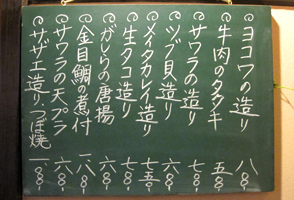 ヨコワの造り 八〇〇
牛肉のタタキ 五〇〇
サワラの造り 七〇〇
ツブ貝造り 六〇〇
メイタカレイ造り 七五〇
生タコ造り 七〇〇
がしらの唐揚 六〇〇
金目鯛の煮付 一八〇〇
サワラの天プラ 六〇〇
サザエ造り つぼ焼